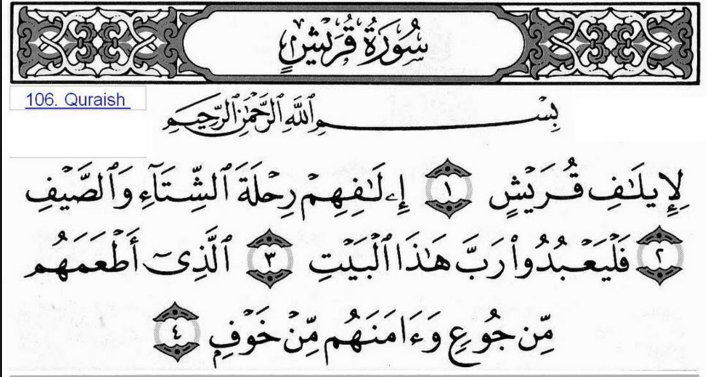 سُورَةُ قُرَيْشٍ
106. Quraish
بِسْمِ ٱللَّهِ ٱلرَّحْمَٰنِ ٱلرَّحِيمِ
لِإِيلَٰفِ قُرَيْشٍ ١ إِۦلَٰفِهِمْ رِحْلَةَ ٱلشِّتَآءِ وَٱلصَّيْفِ
٢ فَلْيَعْبُدُوا۟ رَبَّ هَٰذَا ٱلْبَيْتِ ٣ ٱلَّذِىٓ أَطْعَمَهُم
مِّن جُوعٍ وَءَامَنَهُم مِّنْ خَوْفٍۭ ٤